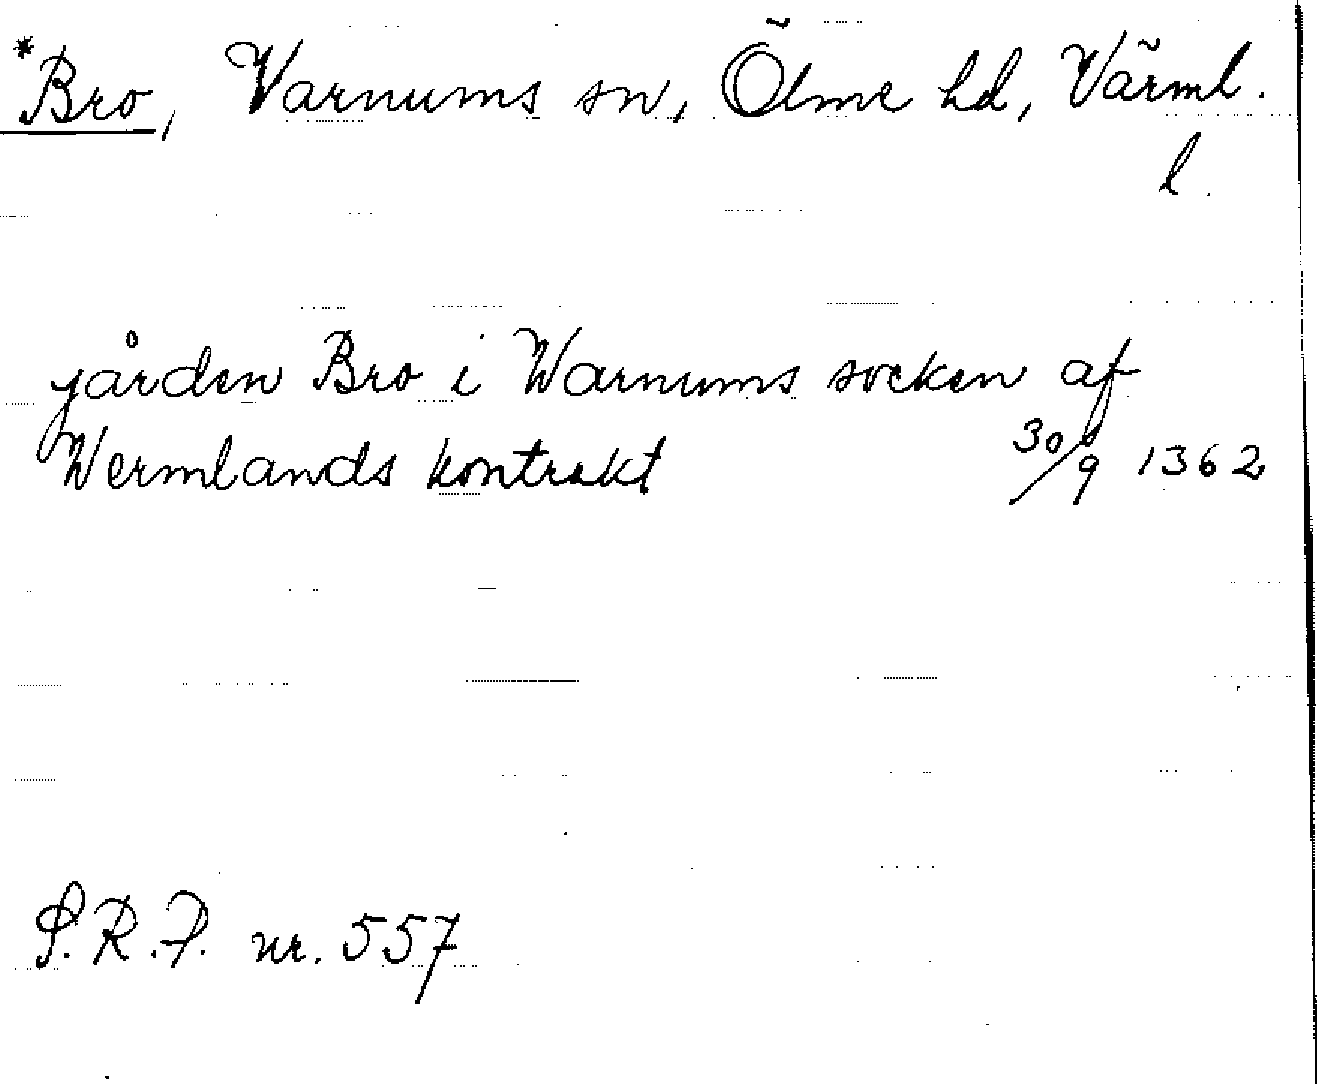 *Bro, Varnums sn, Ölme hd, Värml.
l.
gården Bro i Warnums socken af
Wermlands kontrakt 30/9 1362
S.R.P. nr. 557